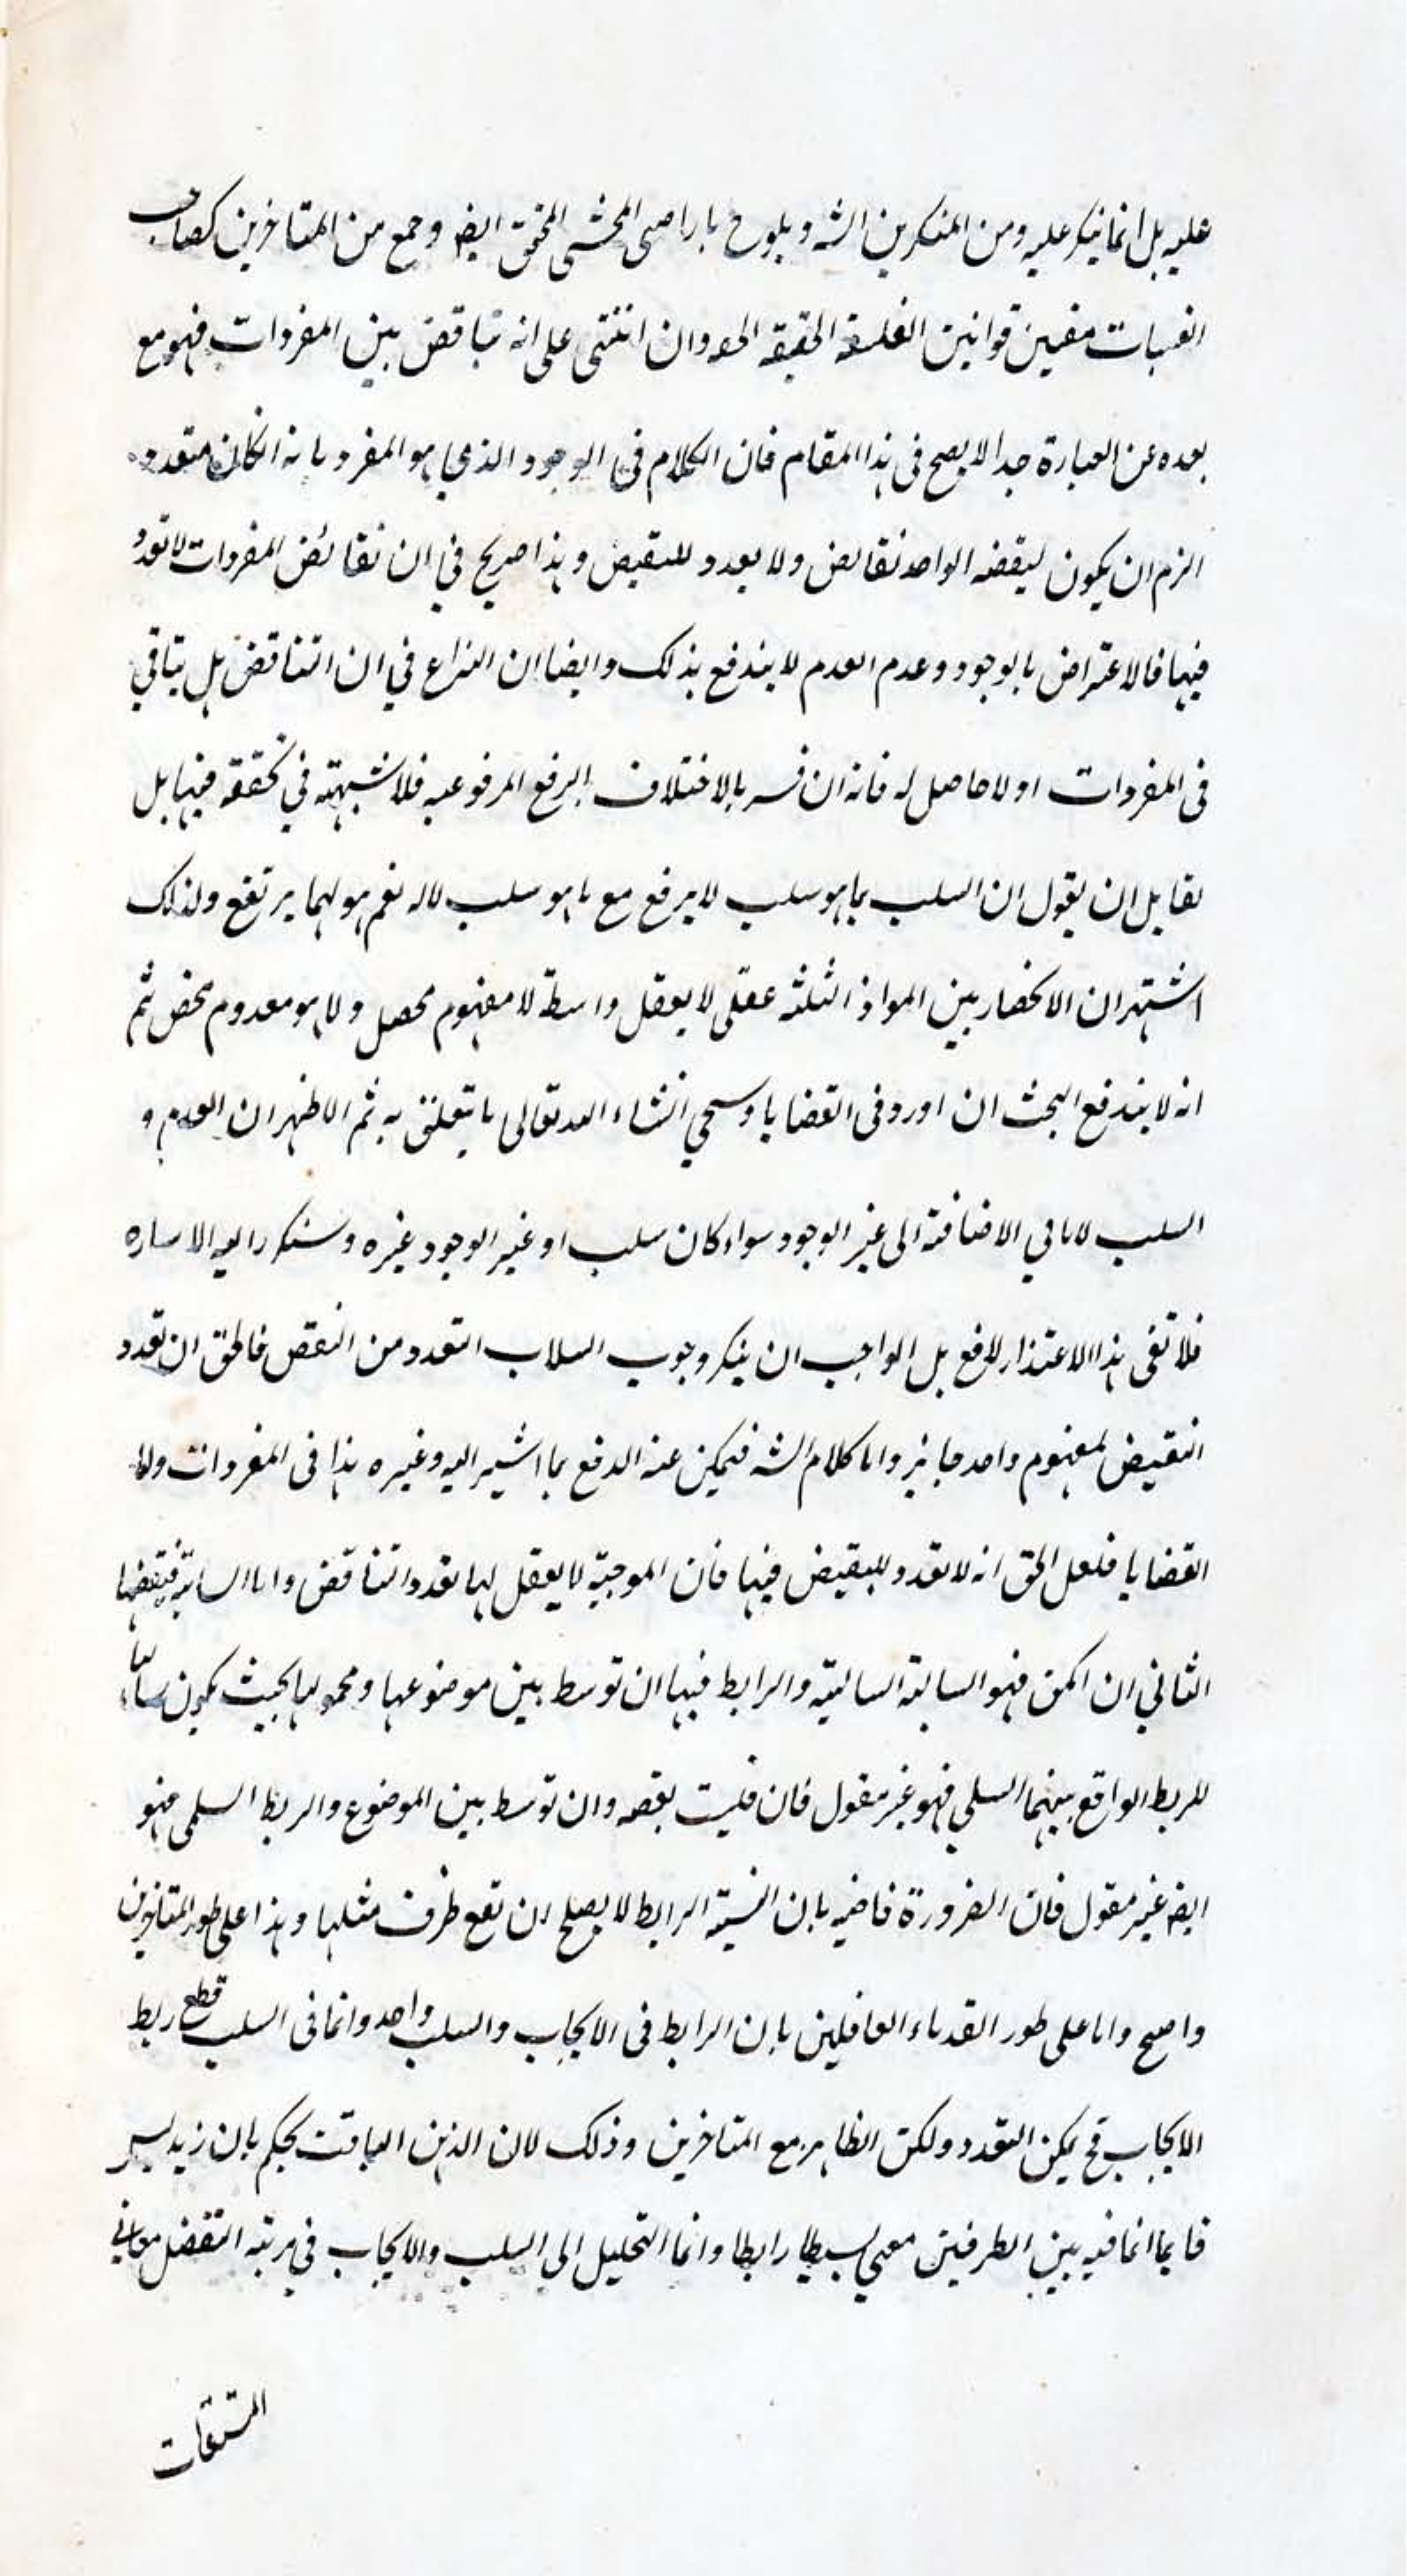 عليه بل انما ينكر عليه ومن المنكرين الشه ويلوح بارا صى المحشى المحقق ايضه وجمع من المتاخرين كصاحب
مقنين قوانين الفلسفة الحقيقه وان ابتنى على انه تناقض بين المفردات فهو مع
بعده عن العبارة جدا لا يصح فى هذا المقام فان الكلام فى الوجود الذي هو المفرد بانه ان كان متعدد
الزم ان يكون لنقيضه الواحد نقائض ولا تعدد للنقيض وهذا صريح في ان نقائض المفردات لا تعدد
فيها فالاعتراض بالوجود وعدم العدم لا يندفع بذلك وايضا ان النزاع في ان التناقض هل يتاتي
فى المفردات او لا حاصل له فانه ان فسر بالاختلاف بالرفع المرفوعيه فلا شبهته في تحققه فيها بل
لقايل ان يقول ان السلب بما هو سلب لا يرفع مع ما هو سلب لاله نعم هو لهما يرتفع ولذلك
اشتهر ان الانحصار بين المواد الثلثه عقلى لا يعقل واسطة لا مفهوم محصل ولا هو معدوم محض ثم
انه لا يندفع البحث ان اورد فى القضايا وسيجي انشاء الله تعالى ما يتعلق به ثم الاظهر ان العدم و
السلب لا يابي الاضافة الى غير الوجود سواء كان سلب او غير الوجود غيره وستكرر اليه الاساره
فلا تفى هذا الاعتذار لدفع بل الواجب ان ينكر وجوب السلاب التعدد من النقيض فالحق ان تعدد
النقيض لمفهوم واحد جايز واما كلام الشه فيمكن عنه الدفع بما اشير اليه وغيره هذا فى المفردات واما
القضايا فلعل الحق انه لا تعدد للنقيض فيها فان الموجبة لا يعقل لها تعدد التناقض واما السالبة فنقيضها
الثاني ان امكن فهو السالبة السالبية والرابط فيها ان توسط بين موضوعها ومحمولها بحيث يكون سالبا
للربط الواقع بينهما السلبي فهو غير معقول فان قليت بقصه وان توسط بين الموضوع والربط السلبى فهو
ايضه غير معقول فان الضرورة قاضيه بان النسبة الرابط لا يصلح ان تقع طرف مثلها وهذا على طور المتاخرين
واضح واما على طور القدماء القائلين بان الرابط فى الايجاب والسلب واحد وانما فى السلب قطع ربط
الايجاب فح يمكن التعدد ولكن الظاهر مع المتاخرين وذلك لان الذهن الباقت يحكم بان زيد ليس
قايما انما فيه بين الطرفين معني بسيطا رابطا وانما التحليل الى السلب والايجاب في مرتبه التفصل معاني